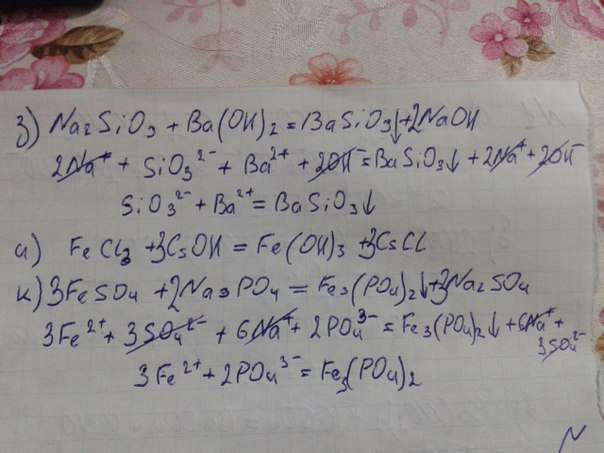 з) Na2SiO3 + Ba(OH)2 = BaSiO3↓ + 2NaOH
2Na⁺ + SiO3²⁻ + Ba²⁺ + 2OH⁻ = BaSiO3↓ + 2Na⁺ + 2OH⁻
SiO3²⁻ + Ba²⁺ = BaSiO3↓
и) FeCl3 + 3CsOH = Fe(OH)3 + 3CsCl
к) 3FeSO4 + 2Na3PO4 = Fe3(PO4)2↓ + 3Na2SO4
3Fe²⁺ + 3SO4²⁻ + 6Na⁺ + 2PO4³⁻ = Fe3(PO4)2↓ + 6Na⁺ +
3SO4²⁻
3Fe²⁺ + 2PO4³⁻ = Fe3(PO4)2
N